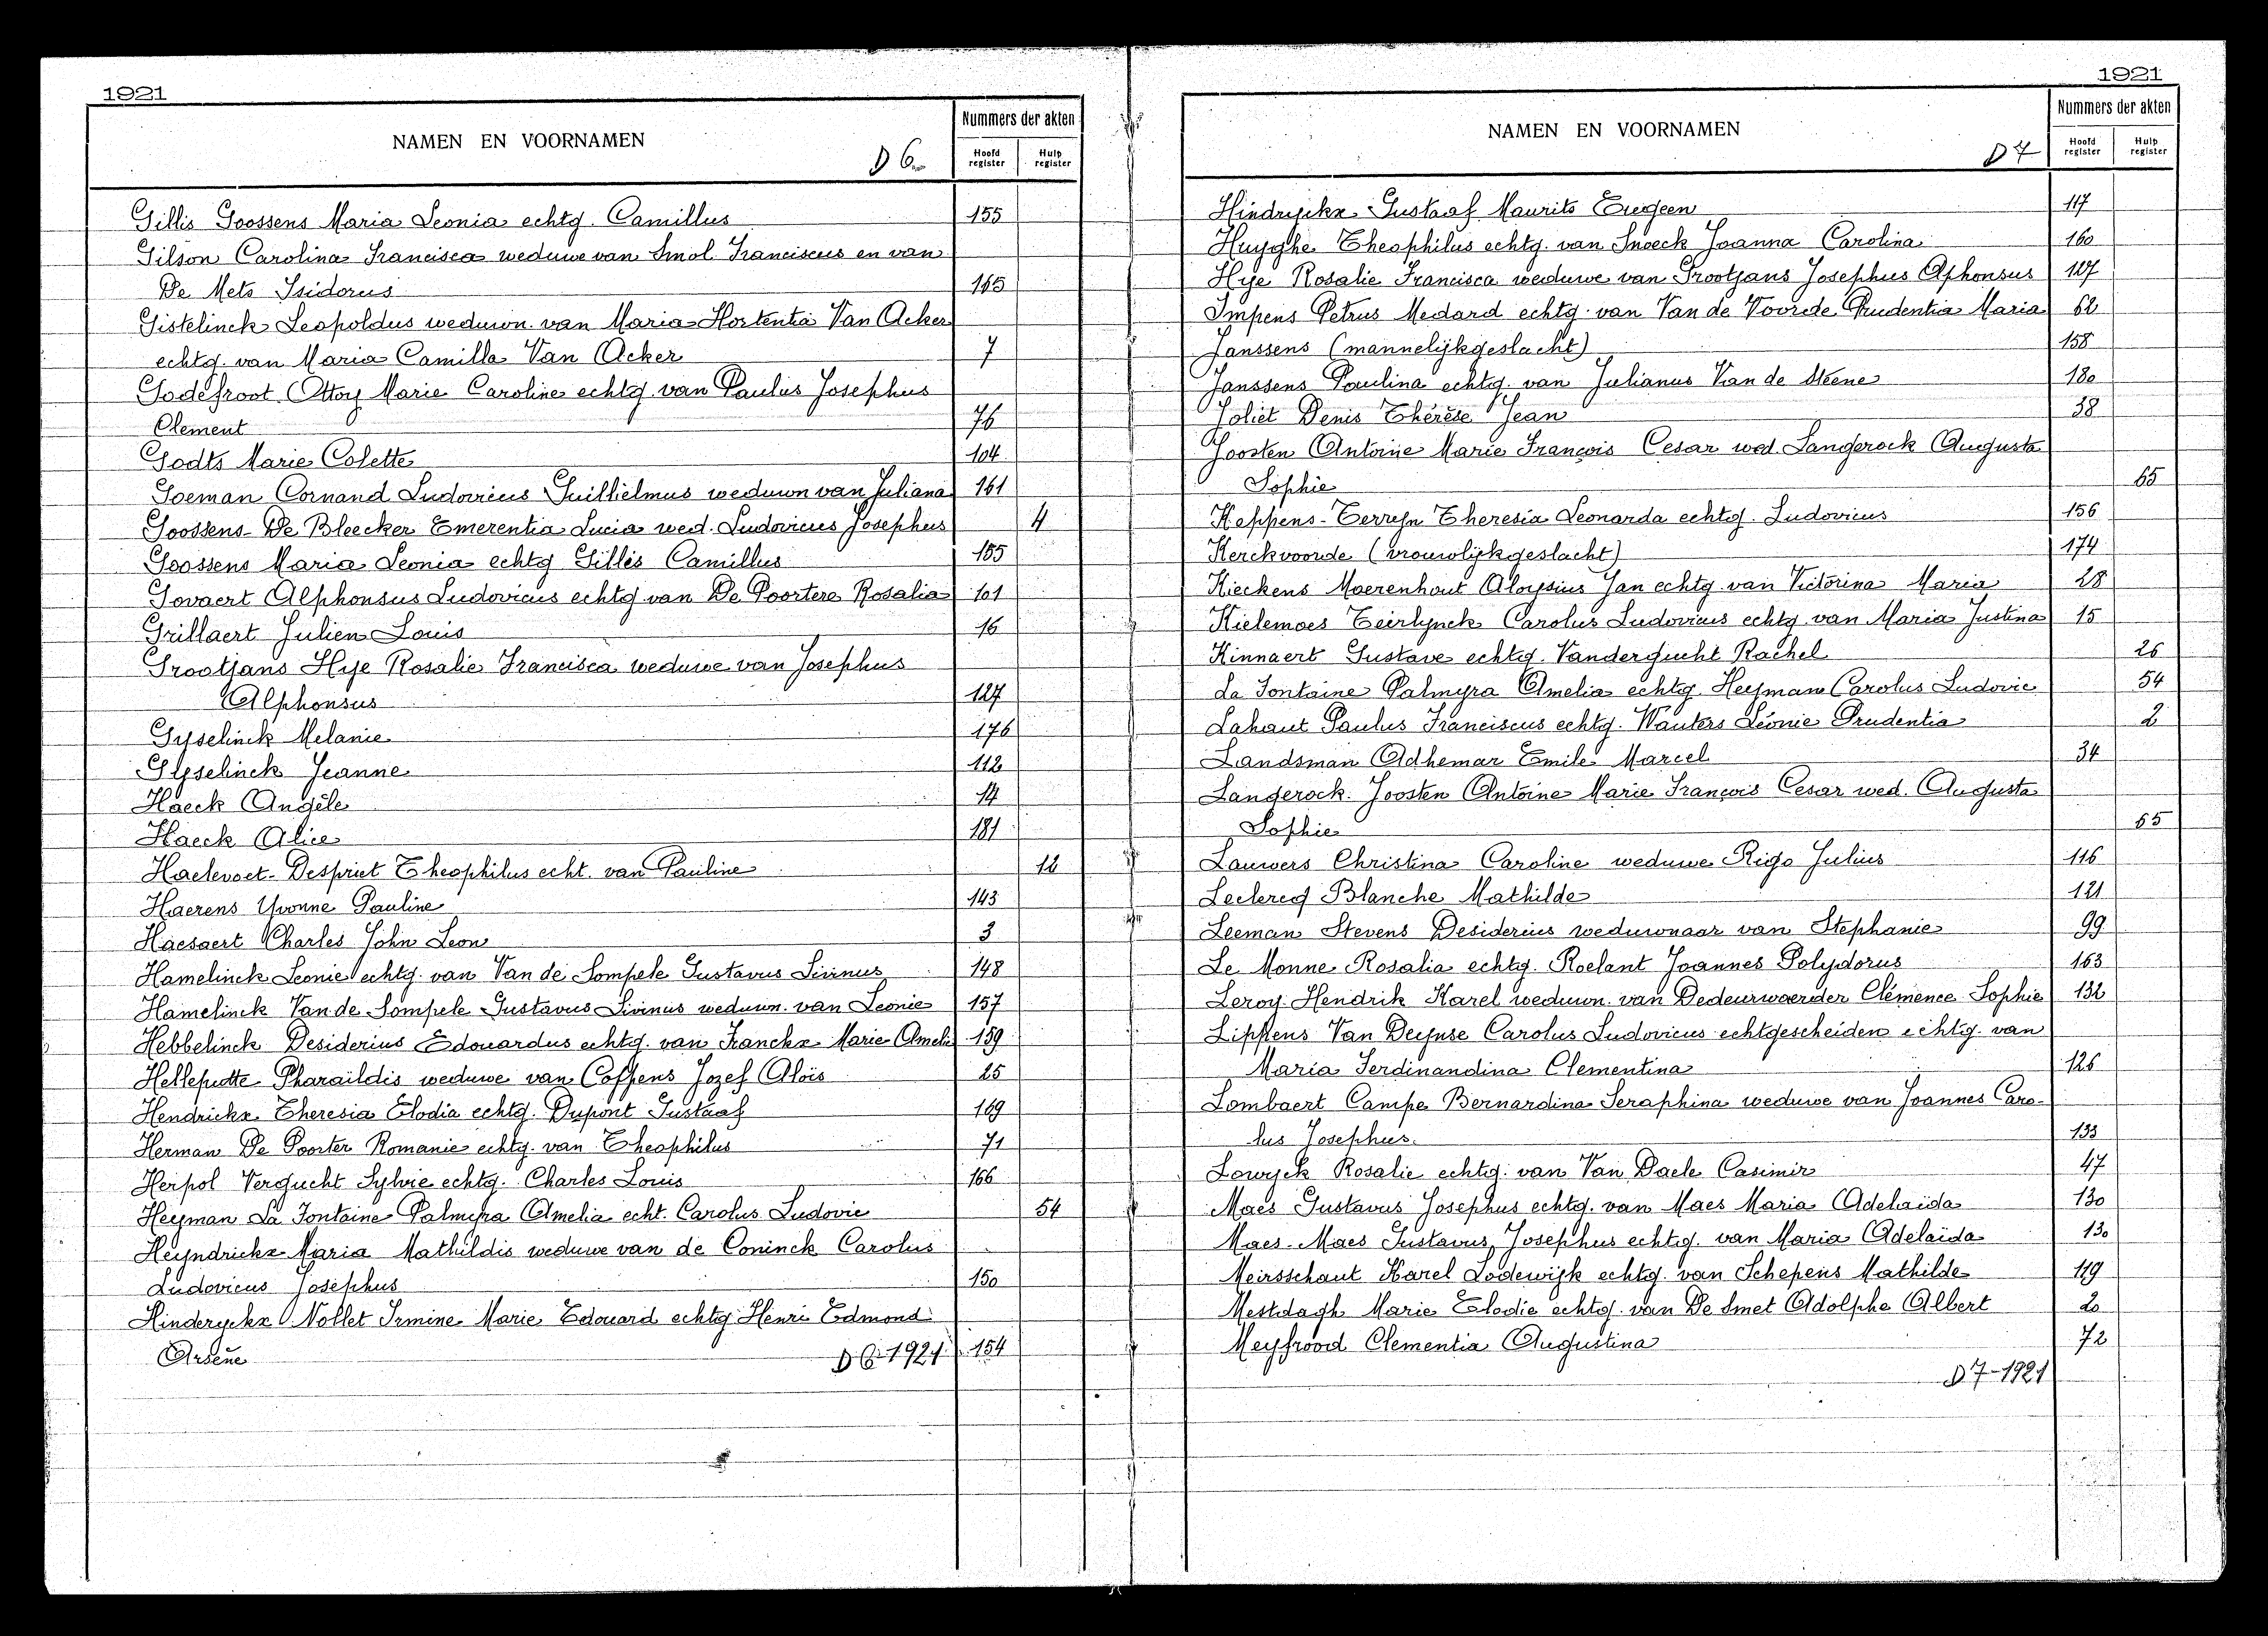 1921
NAMEN EN VOORNAMEN
D 6.
Nummers der akten
Hoofd register
Hulp register
Gillis Goossens Maria Leonia echtg. Camillus 155
Gilson Carolina Francisca weduwe van Smol Franciscus en van
De Mets Isidorus 165
Gistelinck Leopoldus weduwn. van Maria Hortentia Van Acker
echtg. van Maria Camilla Van Acker 7
Godefroot Ottoy Marie Caroline echtg. van Paulus Josephus
Clement 76
Godts Marie Colette 104
Goeman Cornand Ludovicus Guillielmus weduwn van Juliana 161
Goossens-De Bleecker Emerentia Lucia wed. Ludovicus Josephus 4
Goossens Maria Leonia echtg Gillis Camillus 155
Govaert Alphonsus Ludovicus echtg van De Poortere Rosalia 101
Grillaert Julien Louis 16
Grootjans Hye Rosalie Francisca weduwe van Josephus
Alphonsus 127
Gyselinck Melanie 176
Gyselinck Jeanne 112
Haeck Angèle 14
Haeck Alice 181
Haelevoet-Despriet Theophilus echt. van Pauline 12
Haerens Yvonne Pauline 143
Haesaert Charles John Leon 3
Hamelinck Leonie echtg. van Van de Sompele Gustavus Livinus 148
Hamelinck Van de Sompele Gustavus Livinus weduwn. van Leonie 157
Hebbelinck Desiderius Edouardus echtg. van Franckx Marie Amelie 159
Helleputte Pharaildis weduwe van Coppens Jozef Aloïs 25
Hendrickx Theresia Elodia echtg. Dupont Gustaaf 169
Herman De Poorter Romanie echtg. van Theophilus 71
Herpol Vergucht Sylvie echtg. Charles Louis 166
Heyman La Fontaine Palmyra Amelia echt. Carolus Ludovic 54
Heyndrickx Maria Mathildis weduwe van de Coninck Carolus
Ludovicus Josephus 150
Hinderyckx Nollet Irmine Marie Edouard echtg Henri Edmond
Arsène 154
D 6-1921
1921
NAMEN EN VOORNAMEN
D 7
Nummers der akten
Hoofd register
Hulp register
Hindryckx Gustaaf Maurits Eugeen 117
Huyghe Theophilus echtg. van Snoeck Joanna Carolina 160
Hye Rosalie Francisca weduwe van Grootjans Josephus Alphonsus 127
Impens Petrus Medard echtg. van Van de Voorde Prudentia Maria 62
Janssens (mannelijkgeslacht) 158
Janssens Paulina echtg. van Julianus Van de Steene 180
Joliet Denis Thérèse Jean 38
Joosten Antoine Marie François Cesar wed. Langerock Augusta
Sophie 65
Keppens-Terryn Theresia Leonarda echtg. Ludovicus 156
Kerckvoorde (vrouwlijkgeslacht) 174
Kieckens Moerenhout Aloysius Jan echtg van Victorina Maria 28
Kielemoes Teirlynck Carolus Ludovicus echtg van Maria Justina 15
Kinnaert Gustave echtg. Vandergucht Rachel 26
La Fontaine Palmyra Amelia echtg. Heyman Carolus Ludovic 54
Lahaut Paulus Franciscus echtg. Wauters Léonie Prudentia 2
Landsman Adhemar Emile Marcel 34
Langerock Joosten Antoine Marie François Cesar wed. Augusta
Sophie 65
Lauwers Christina Caroline weduwe Rigo Julius 116
Leclercq Blanche Mathilde 121
Leeman Stevens Desiderius weduwnaar van Stephanie 99
Le Monne Rosalia echtg. Roelant Joannes Polydorus 163
Leroy Hendrik Karel weduwn. van Dedeurwaerder Clémence Sophie 132
Lippens Van Deynse Carolus Ludovicus echtgescheiden echtg. van
Maria Ferdinandina Clementina 126
Lombaert Campe Bernardina Seraphina weduwe van Joannes Caro-
lus Josephus 133
Lowyck Rosalie echtg. van Van Daele Casimir 47
Maes Gustavus Josephus echtg. van Maes Maria Adelaida 130
Maes-Maes Gustavus Josephus echtg. van Maria Adelaida 130
Meirsschaut Karel Lodewijk echtg. van Schepens Mathilde 119
Mestdagh Marie Elodie echtg. van De Smet Adolphe Albert 20
Meyfrood Clementia Augustina 72
D 7-1921